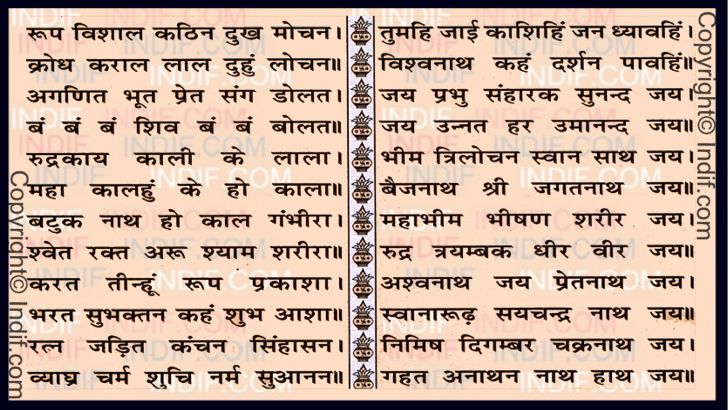 रूप विशाल कठिन दुख मोचन।
क्रोध कराल लाल दुहुं लोचन॥
अगणित भूत प्रेत संग डोलत।
बं बं बं शिव बं बं बोलत॥
रुद्रकाय काली के लाला।
महा कालहुं के हो काला॥
बटुक नाथ हो काल गंभीरा।
श्वेत रक्त अरू श्याम शरीरा॥
करत तीन्हूं रूप प्रकाशा।
भरत सुभक्तन कहं शुभ आशा॥
रत्न जड़ित कंचन सिंहासन।
व्याघ्र चर्म शुचि नर्म सुआनन॥
तुमहि जाई काशिहिं जन ध्यावहिं।
विश्वनाथ कहं दर्शन पावहिं॥
जय प्रभु संहारक सुनन्द जय।
जय उन्नत हर उमानन्द जय॥
भीम त्रिलोचन स्वान साथ जय।
बैजनाथ श्री जगतनाथ जय॥
महाभीम भीषण शरीर जय।
रुद्र त्रयम्बक धीर वीर जय॥
अश्वनाथ जय प्रेतनाथ जय।
स्वानारूढ़ सयचन्द्र नाथ जय॥
निमिष दिगम्बर चक्रनाथ जय।
गहत अनाथन नाथ हाथ जय॥
Copyright© Indif.com
Copyright© Indif.com
INDIF.COM